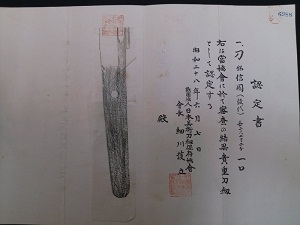 認定書
一、刀 銘 信国(後代) 一口
右は當協會に於て審査の結果貴重刀剣
として認定する
昭和二十八年六月七日
財団法人日本美術刀剣保存協會
会長 細川護立
殿